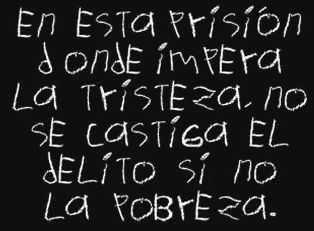 En Esta prisión
dondE impEra
La tristEza, no
sE castiga EL
dELito si no
La pobrEza.